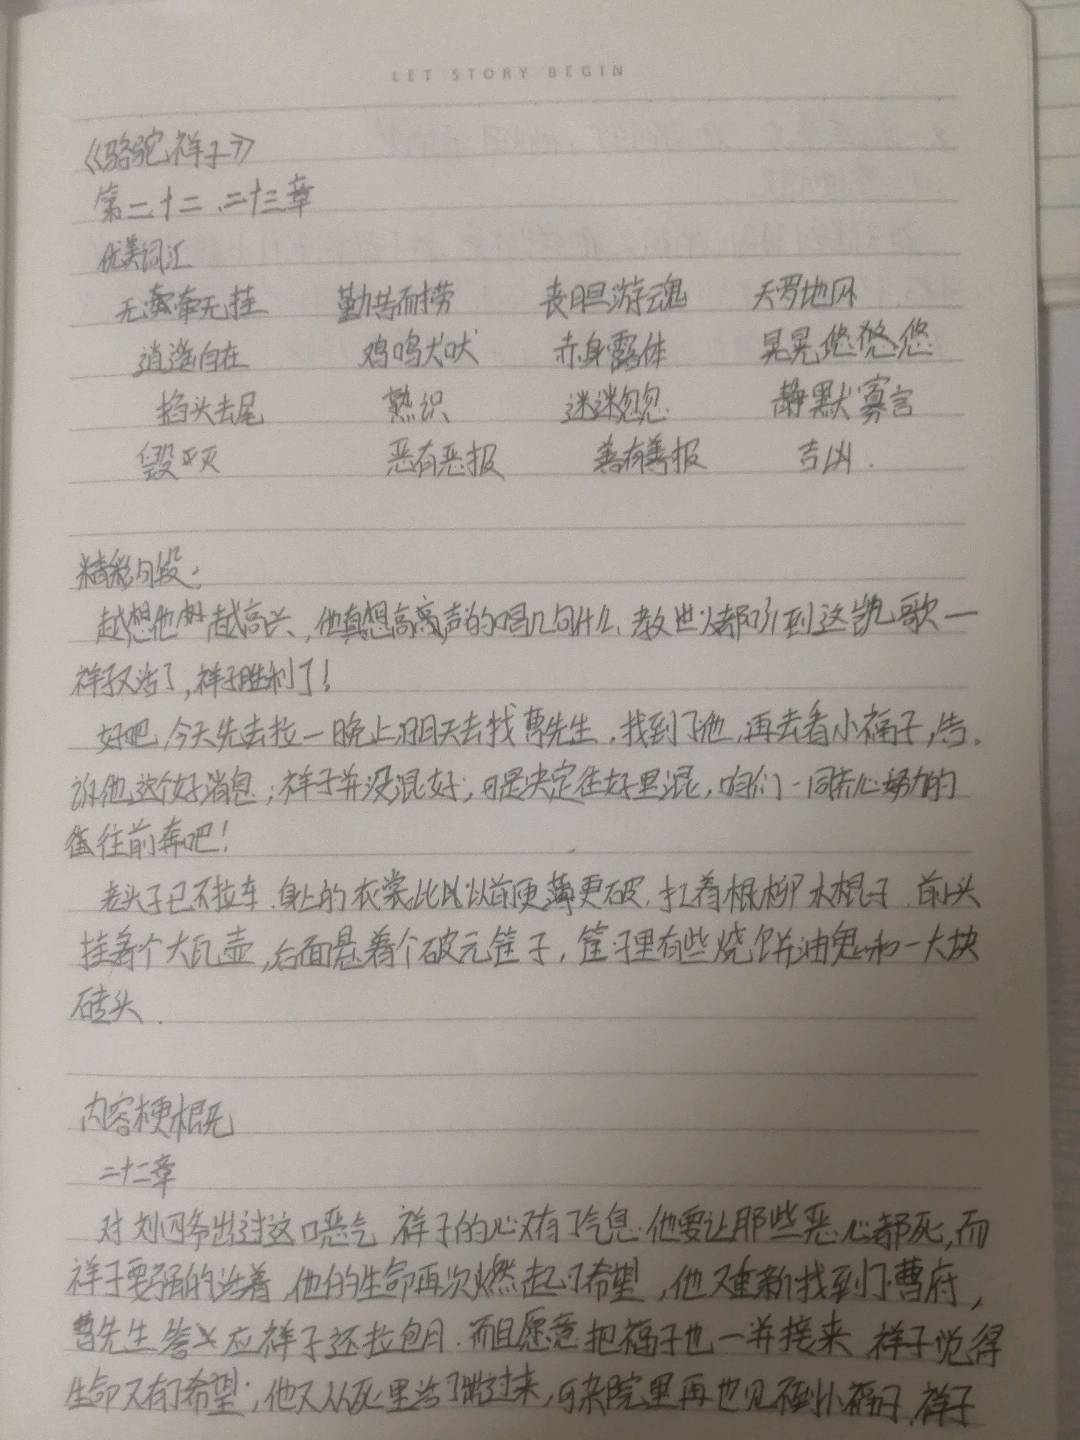 LET STORY BEGIN
《骆驼祥子》
第二十二、二十三章
优美词汇
无牵无挂 勤苦耐劳 丧胆游魂 天罗地网
逍遥自在 鸡鸣犬吠 赤身露体 晃晃悠悠悠
掐头去尾 熟识 迷迷忽忽 静默寡言
毁灭 恶有恶报 善有善报 吉凶.
精彩句段:
越想他越高兴、他真想高高声的唱几句什么、教世人都听到这凯歌一
祥子又活了,祥子胜利了!
好吧,今天先去拉一晚上,明天去找曹先生.找到了他,再去看小福子,告.
诉他这个好消息;祥子并没混好;可是决定往好里混,咱们一同齐心努力的
往前奔吧!
老头子已不拉车.身上的衣裳比以前更薄更破.扛着根柳木棍子.前头
挂着个大瓦壶,后面悬着个破元筐子,筐子里有些烧饼油鬼和一大块
砖头.
内容梗概
二十二章
对刘四爷出过这口恶气,祥子的心又有了气息.他要让那些恶心都死,而
祥子要强的活着,他的生命再次燃起了希望,他又重新找到了曹府,
曹先生答应祥子还拉包月.而且愿意把福子也一并接来.祥子觉得
生命又有了希望;他又从死里活了过来,可杂院里再也见不到小福子.祥子